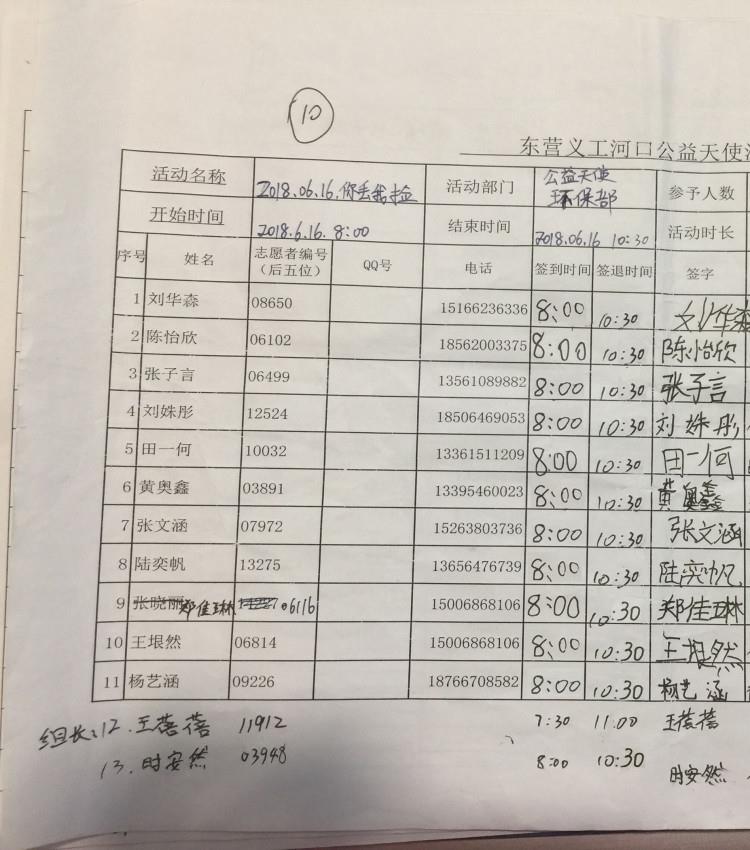 10
东营义工河口公益天使
活动名称 2018.06.16.你丢我捡 活动部门 公益天使 环保部 参予人数
开始时间 2018.6.16. 8:00 结束时间 2018.06.16 10:30 活动时长
序号 姓名 志愿者编号（后五位） QQ号 电话 签到时间 签退时间 签字
1 刘华森 08650 15166236336 8:00 10:30 刘华森
2 陈怡欣 06102 18562003375 8:00 10:30 陈怡欣
3 张子言 06499 13561089882 8:00 10:30 张子言
4 刘姝彤 12524 18506469053 8:00 10:30 刘姝彤
5 田一何 10032 13361511209 8:00 10:30 田一何
6 黄奥鑫 03891 13395460023 8:00 10:30 黄奥鑫
7 张文涵 07972 15263803736 8:00 10:30 张文涵
8 陆奕帆 13275 13656476739 8:00 10:30 陆奕帆
9 张晓丽 郑佳琳 06116 15006868106 8:00 10:30 郑佳琳
10 王垠然 06814 15006868106 8:00 10:30 王垠然
11 杨艺涵 09226 18766708582 8:00 10:30 杨艺涵
组长:12.王蓓蓓 11912 7:30 11:00 王蓓蓓
13.时安然 03948 8:00 10:30 时安然